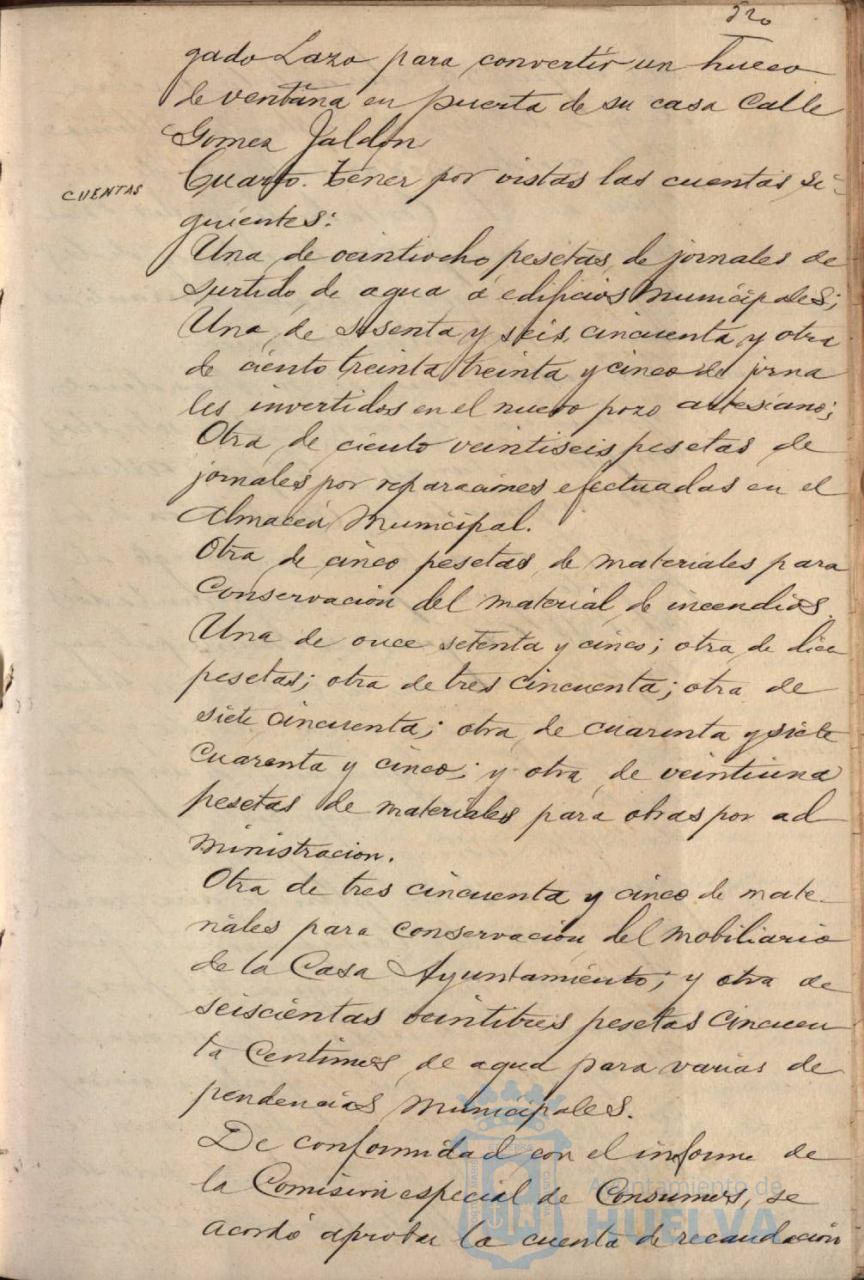 520
gado Lazo para convertir un hueco
de ventana en puerta de su casa Calle
Gomez Jaldon
CUENTAS
Cuarto. Tener por vistas las cuentas si-
guientes:
Una de veintiocho pesetas de jornales de
surtido de agua á edificios municipales;
Una de sesenta y seis cincuenta y otra
de ciento treinta treinta y cinco de jorna
les invertidos en el nuevo pozo artesiano;
Otra de ciento veintiseis pesetas de
jornales por reparaciones efectuadas en el
Almacen Municipal.
Otra de cinco pesetas de materiales para
Conservacion del material de incendios.
Una de once setenta y cinco; otra de diez
pesetas; otra de tres cincuenta; otra de
siete cincuenta; otra de cuarenta y siete
cuarenta y cinco; y otra de veintiuna
pesetas de materiales para obras por ad
ministracion.
Otra de tres cincuenta y cinco de mate-
riales para conservacion del mobiliario
de la Casa Ayuntamiento; y otra de
seiscientas veintitres pesetas cincuen
ta Centimos de agua para varias de
pendencias municipales.
De conformidad con el informe de
la Comision especial de Consumos, se
acordó aprobar la cuenta de recaudación
Ayuntamiento de
HUELVA